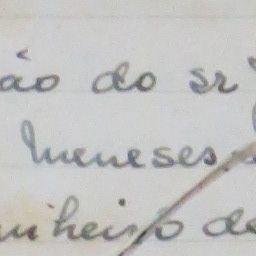 ão do sr
Meneses
nheiro de